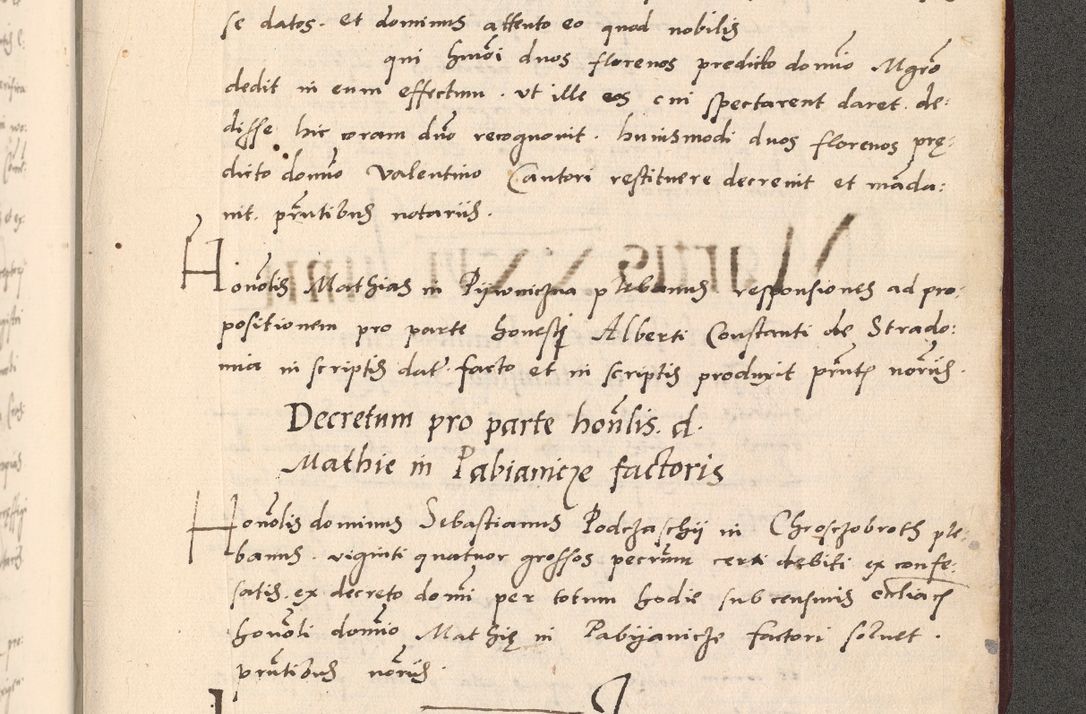 se datos. et dominus attento eo quod nobilis
qui hmōi duos florenos predicto domīo Mgrō
dedit in eum effectum. ut ille eos cui spectarent daret. de:
disse hic coram dnō recognovit. huiusmodi duos florenos prę:
dicto domīo Valentino Cantori restituere decrevit et māda:
vit. pn̄tibus notariis.
Honōlis Mathias in Pijwniczna plebanus responsiones ad pro:
positionem pro parte honesti Alberti Constanti de Strado:
mia in scriptis dat. facto et in scriptis produxit pn̄te norīis.
Decretum pro parte hon̄lis. d.
Mathie in Pabianicze factoris
Honōlis dominus Sebastianus Podczaschij in Chrosczobroth ple:
banus. viginti quatuor grossos pecun̄m veri debiti ex confe:
satis. ex decreto domī per totum hodie sub censuris eccliacis
honōli domīo Mathię in Pabijanicze factori solvet.
pn̄tibus norīis.